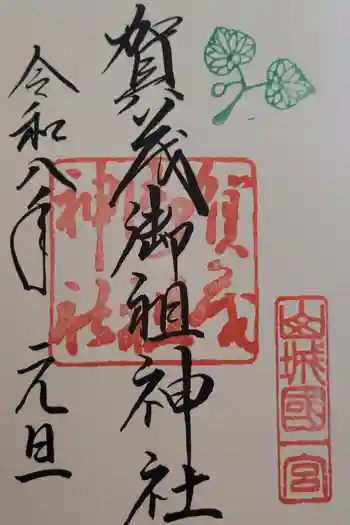 山城國一宮
賀茂御祖神社
賀茂御祖神社
令和八年 元旦